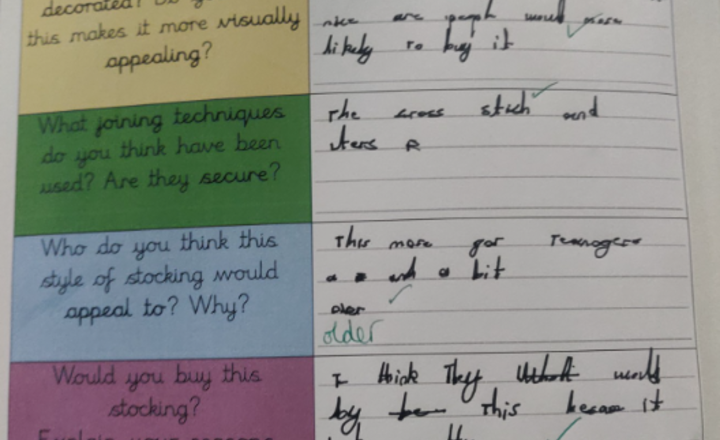 decorated? Do
this makes it more visually
appealing?
nice are peopl would more
likely to buy it
What joining techniques
do you think have been
used? Are they secure?
The cross stich and
R
Who do you think this
style of stocking would
appeal to? Why?
This more for Teenagers
a and a bit
older
Would you buy this
stocking?
I think They would
by this because it